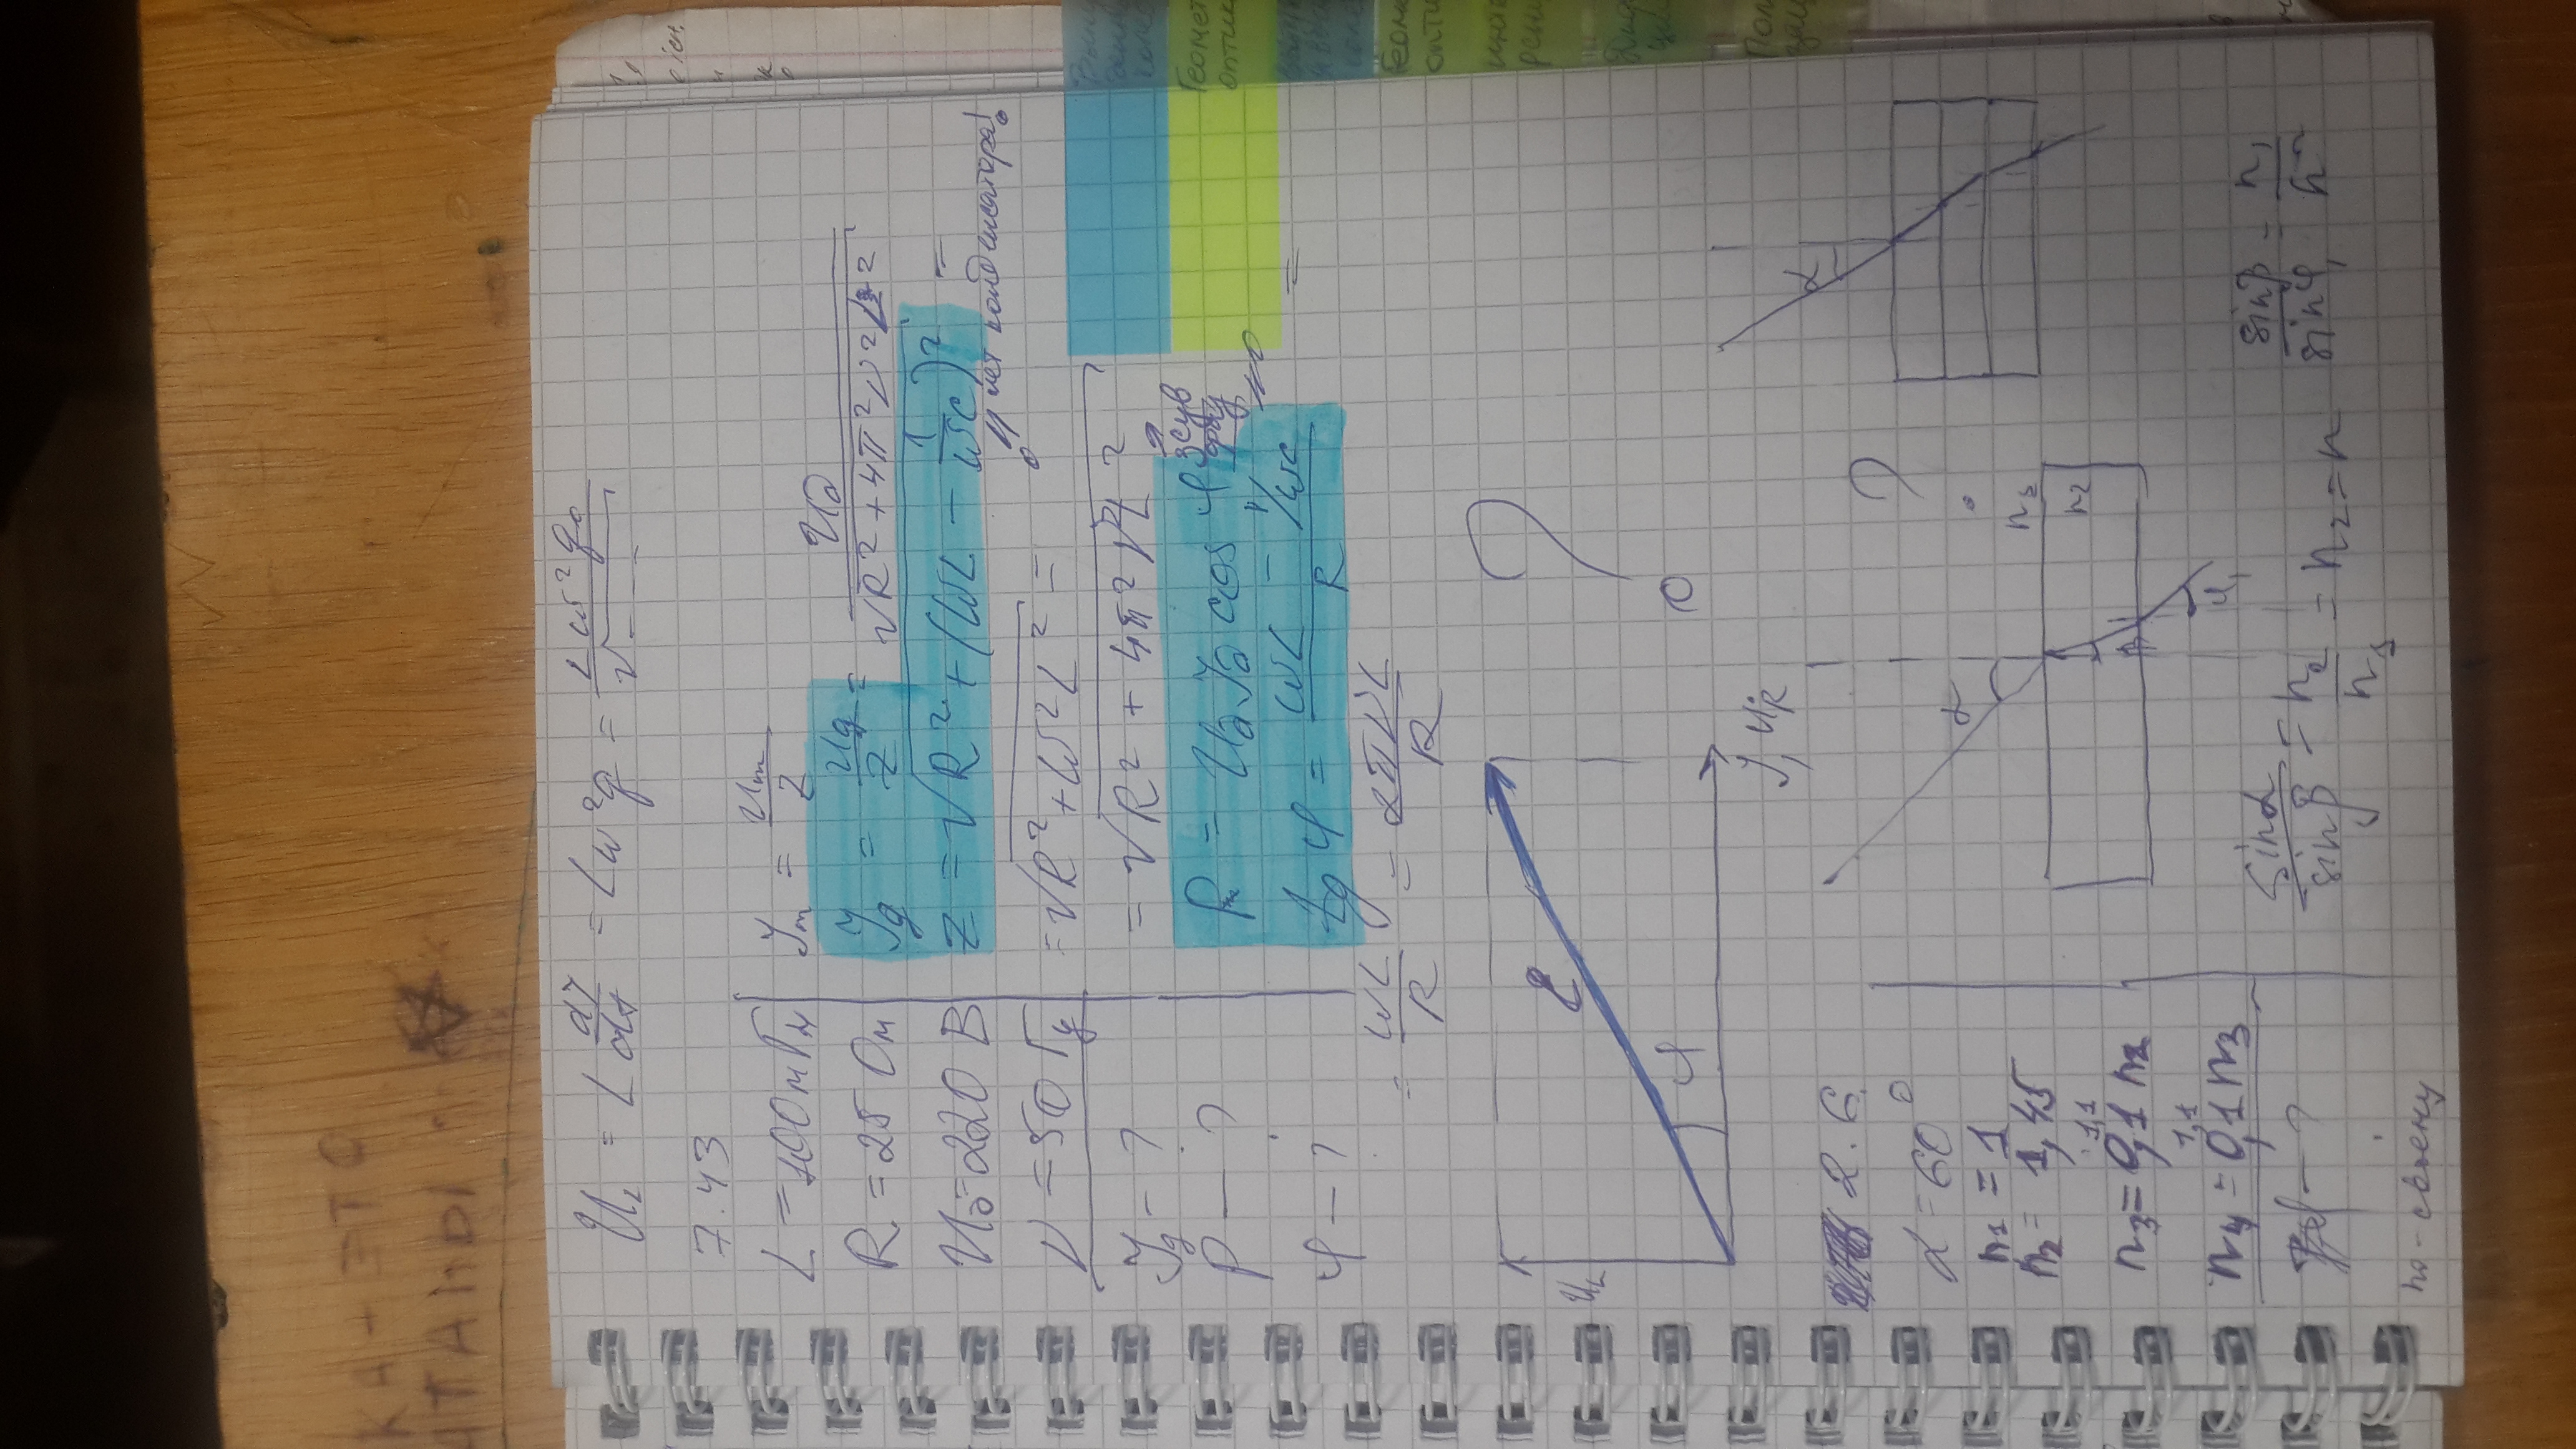 КА - ЭТО
ШТАНЫ
U_L = L dJ/dt = Lω²q = Lω²q₀/√---
7.43
L = 100 мГн
R = 25 Ом
U_д = 220 В
ν = 50 Гц
J_д - ?
P - ?
φ - ?
J_m = U_m/Z
J_д = U_д/Z = U_д/√(R² + 4π²ν²L²)
Z = √(R² + (ωL - 1/ωC)²) =
0 нет конденсатора!
= √(R² + ω²L²) =
= √(R² + 4π²ν²L²)
P = U_д J_д cos φ зсув фаз
tg φ = (ωL - 1/ωC)/R =
0
= ωL/R = 2πνL/R
U_L
ε
φ
J, U_R
?
2.6.
α = 60°
n₁ = 1
n₂ = 1,45
1,1
n₃ = 0,1 n₂
1,1
n₄ = 0,1 n₃
φ - ?
по-своему
α
n₁
n₂
β
φ₁
?
α
sinα/sinβ = n₂/n₁ = n₂ = n
sinβ/sinφ₁ = n₁/n₂
Геомет
оптик
Геом
опти
Пол